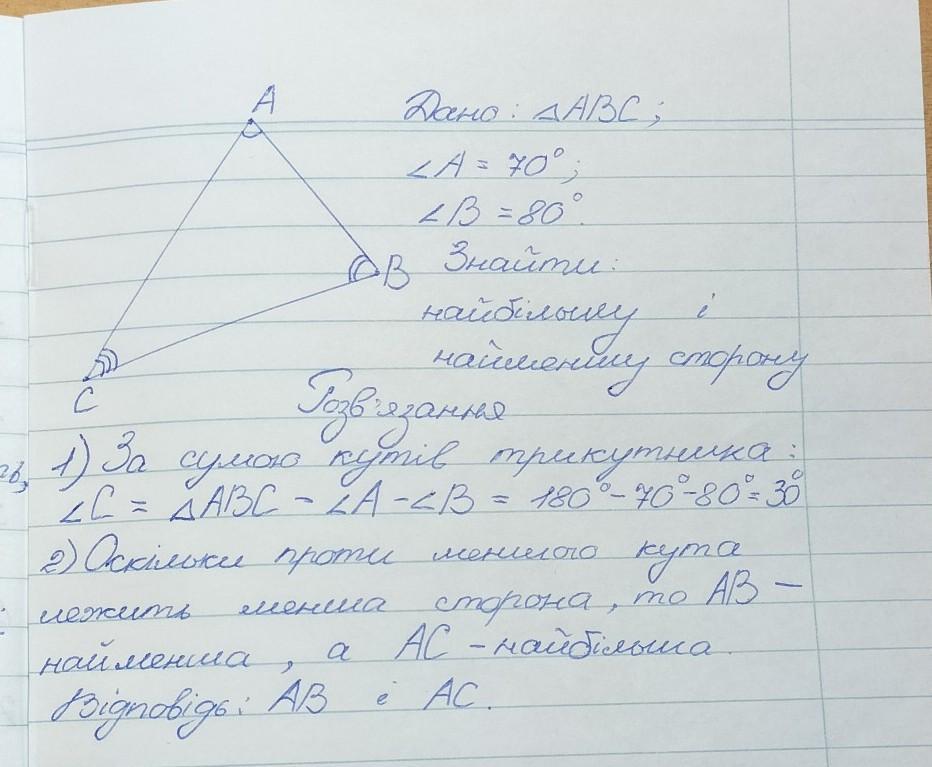 A
Дано: △ABC;
∠A = 70°;
∠B = 80°.
B
Знайти:
найбільшу і
найменшу сторону
C
Розв'язання
1) За сумою кутів трикутника:
∠C = △ABC - ∠A - ∠B = 180° - 70° - 80° = 30°
2) Оскільки проти меншого кута
лежить менша сторона, то AB –
найменша, а AC - найбільша.
Відповідь: AB і AC.